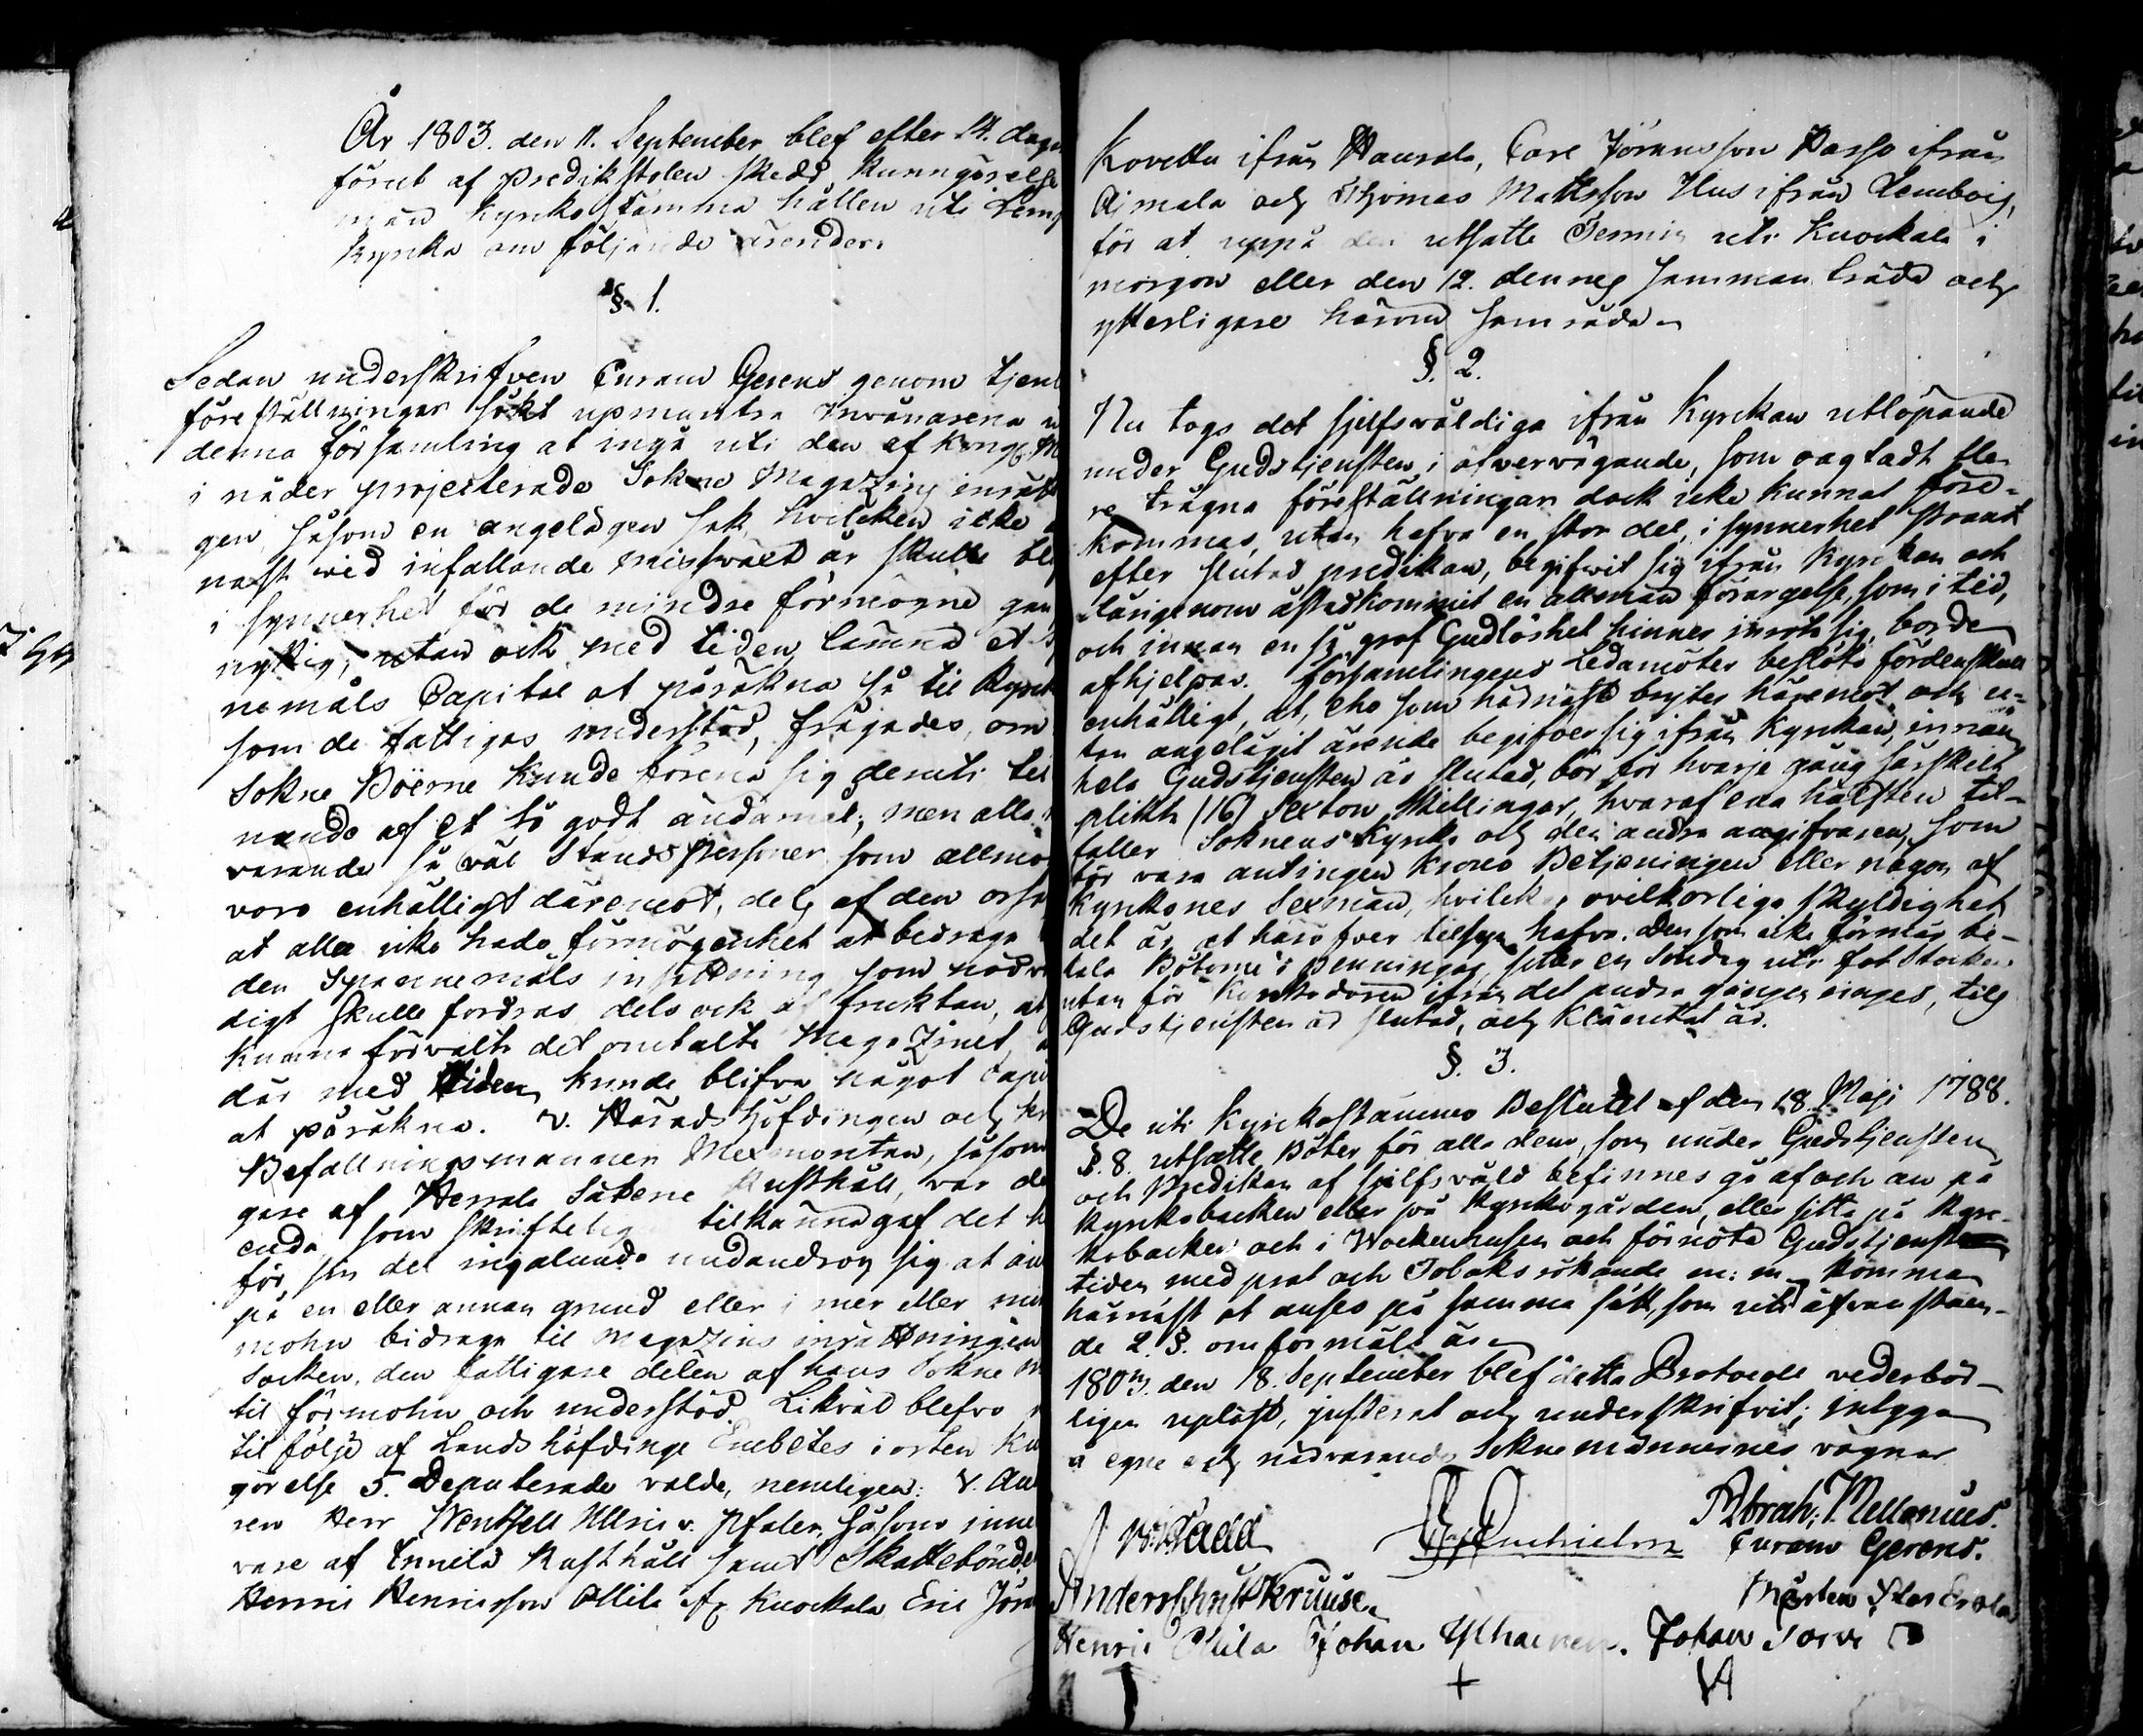 År 1803. den 11. September blef efter 14. daga
förut af Predikstolen skedd kunngörelse
män Kyrkostämma hållen uti Lemp
Kyrka om följande ärender.
§. 1.
Sedan underskrifven Curam Gerens genom tjenl
föreställningar sökt upmuntra Invånarena
denna församling at ingå uti den af Kongl. M
i nåder projecterade Sokne Magazins inrätt
gen, såsom en angelägen sak, hvilcken icke
nast vid infallande missväxt år skulle bli
i synnerhet för de mindre förmögne gan
nyttig, utan ock med tiden lämna et
nemåls Capital at påräkna så til Kyrck
som de fattigas understöd, frågades, om
Sokne Boerne kunde förena sig deruti til
nande af et så godt ändamål; men alla
varande så väl StåndsPersoner som allmo
voro enhälligt däremot, dels af den orsa
at alla icke hade förmögenhet at bidraga
den Spannemåls insättning som nödv
digt skulle fordras dels ock af fruktan, at
kunna förvalta det omtalte MagaZinet,
där med tiden kunde blifva något Capi
at påräkna. v. Häradshöfdingen och Kr
Befallningsmannen Mexmontan, såsom
gare af Herrala Säterie Rusthåll, var de
enda, som skrifteligen tilkännagaf det h
för sin del ingalunda undandrog sig at an
på en eller annan grund eller i mer eller min
mohn bidraga til Magazins inrättningen
Socken, den fattigare delen af hans Sokne M
til förmohn och understöd. Likväl blefvo
til följe af Landshöfdinge Embetes i orten Ku
görelse 5. Deputerade valde, nemligen: v. Au
ren Herr Wentzell Ulric v. Pfaler, såsom inne
vare af Ennilä Rusthåll samt Skattebönde
Henric Henricsson Ollila ifr Kuockala Eric Jöra
Kovella ifrån Hauvala, Carl Jöransson Passo ifrån
Aimala och Thomas Mattsson Uus ifrån Lembois,
för at uppå den utsatte Termin uti Kuockala i
morgon eller den 12. dennes samman träda och
ytterligare härom samråda.
§. 2.
Nu togs det sjelfsvåldiga ifrån Kyrckan utlöpande
under Gudstjensten i öfvervägande, som oagtadt fle
re trägna föreställningar dock icke kunnat före-
kommas, utan hafva en stor del, i synnerhet straxt
efter slutad predikan, begifvit sig ifrån Kyrckan och
därigenom åstadkommit en allmän förargelse, som i tid,
och innan en så grof Gudlöshet hinner inrota sig, borde
afhjelpas. Församlingens Ledamöter beslöto fördenskull
enhälligt, at, eho som hädnäst bryter häremot och u-
tan angelägit ärende begifver sig ifrån Kyrckan, innan
hela Gudstjensten är slutad, bör för hvarje gång särskilt
plikta (16) Sexton Skillingar, hvaraf ena hälften til-
faller Soknens Kyrka och den andra angifvaren, som
bör vara antingen Krono Betjeningen eller någon af
Kyrkones Sexmän, hvilckas ovilkorliga skyldighet
det är at häröfver tilsyn hafva. Den som icke förmår be-
tala Böterne i penningar, sitter en Söndag uti fotStocken
utan för Kyrkodören ifrån det andra gången ringes, tils
Gudstjensten är slutad, och klämtat är.
§. 3.
De uti Kyrckostämmo Beslutet af den 18. Maji 1788.
§. 8. utsatte Böter för alla dem, som under Gudstjensten
och Predikan af sjelfsvåld befinnes gå af och an på
Kyrkobacken eller på Kyrkogården, eller sitta på Kyr-
kobacken och i Wockenhusen och förnöta Gudstjenste
tiden med prat och Tobaks rökande m: m, komma
härnäst at anses på samma sätt, som uti åfvanståen-
de 2. §. omförmält är.
1803. den 18. September blef detta Protocoll vederbör-
ligen upläst, justerat och underskrifvit; intyga
å egne och närvarande Soknemännernes vägnar
Abrah: Mellenius.
Curam Gerens.
Anders Kruuse.
Mårten
Henric Ollila Johan Johan
+